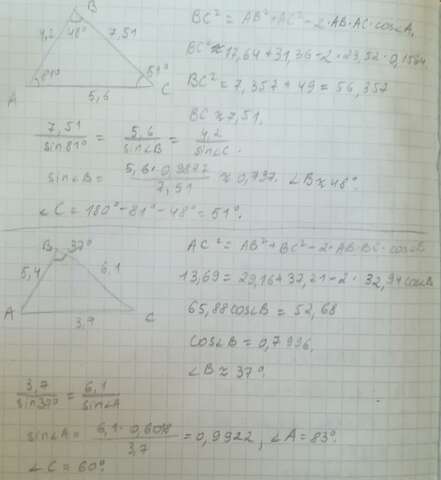 B
4,2 48° 7,51
81° 51°
A C
5,6
BC² = AB² + AC² - 2·AB·AC·cos∠A,
BC² ≈ 17,64 + 31,36 - 2·23,52·0,1564
BC² = 7,357 + 49 = 56,357
BC ≈ 7,51,
7,51/sin81° = 5,6/sin∠B = 4,2/sin∠C.
sin∠B = 5,6·0,9877/7,51 ≈ 0,737. ∠B ≈ 48°.
∠C = 180° - 81° - 48° = 51°.
B 37°
5,4 6,1
A C
3,7
AC² = AB² + BC² - 2·AB·BC·cos∠B
13,69 = 29,16 + 37,21 - 2·32,94cos∠B
65,88cos∠B = 52,68
cos∠B = 0,7996,
∠B ≈ 37°.
3,7/sin37° = 6,1/sin∠A
sin∠A = 6,1·0,6018/3,7 = 0,9922, ∠A = 83°.
∠C = 60°.